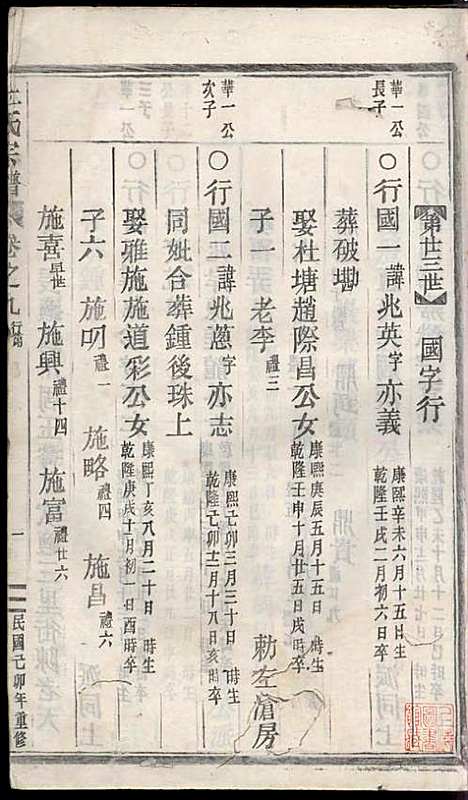 第廿三世 國字行
華一公
長子
○行國一 諱 兆英 字 亦義 康熙辛未六月十五日 時生
乾隆壬戌二月初六日 時卒
葬破塸
娶杜塘趙際昌公女 康熙庚辰五月十五日 時生
乾隆壬申十月廿五日戌時卒
子一 老李 禮三 勅左滄房
華一公
次子
○行國二 諱 兆蔥 字 亦志 康熙己卯三月三十日 時生
乾隆己卯十二月十八日亥時卒
同妣合葬鍾後珠上
娶雅施施道彩公女 康熙丁亥八月二十日 時生
乾隆庚戌十月初一日酉時卒
子六 施叨 禮一 施略 禮四 施昌 禮六
施喜 早世 施興 禮十四 施富 禮廿六
氏宗譜 卷之九 行第 一 民國己卯年重修